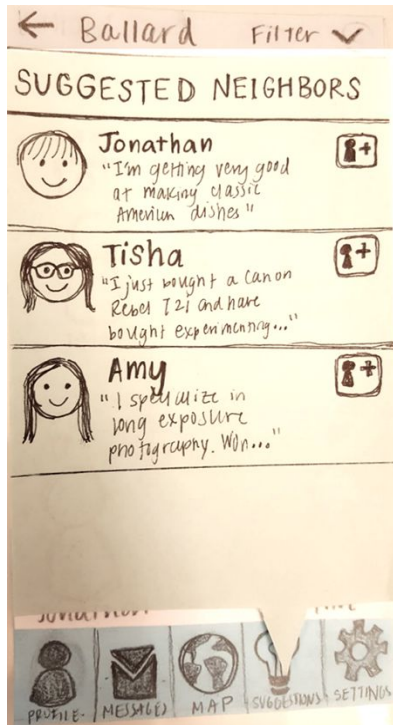 ← Ballard Filter
SUGGESTED NEIGHBORS
Jonathan
"I'm getting very good
at making classic
American dishes"
Tisha
"I just bought a Canon
Rebel T2i and have
bought experimenting..."
Amy
"I specialize in
long exposure
photography. Won..."
PROFILE MESSAGES MAP SUGGESTIONS SETTINGS